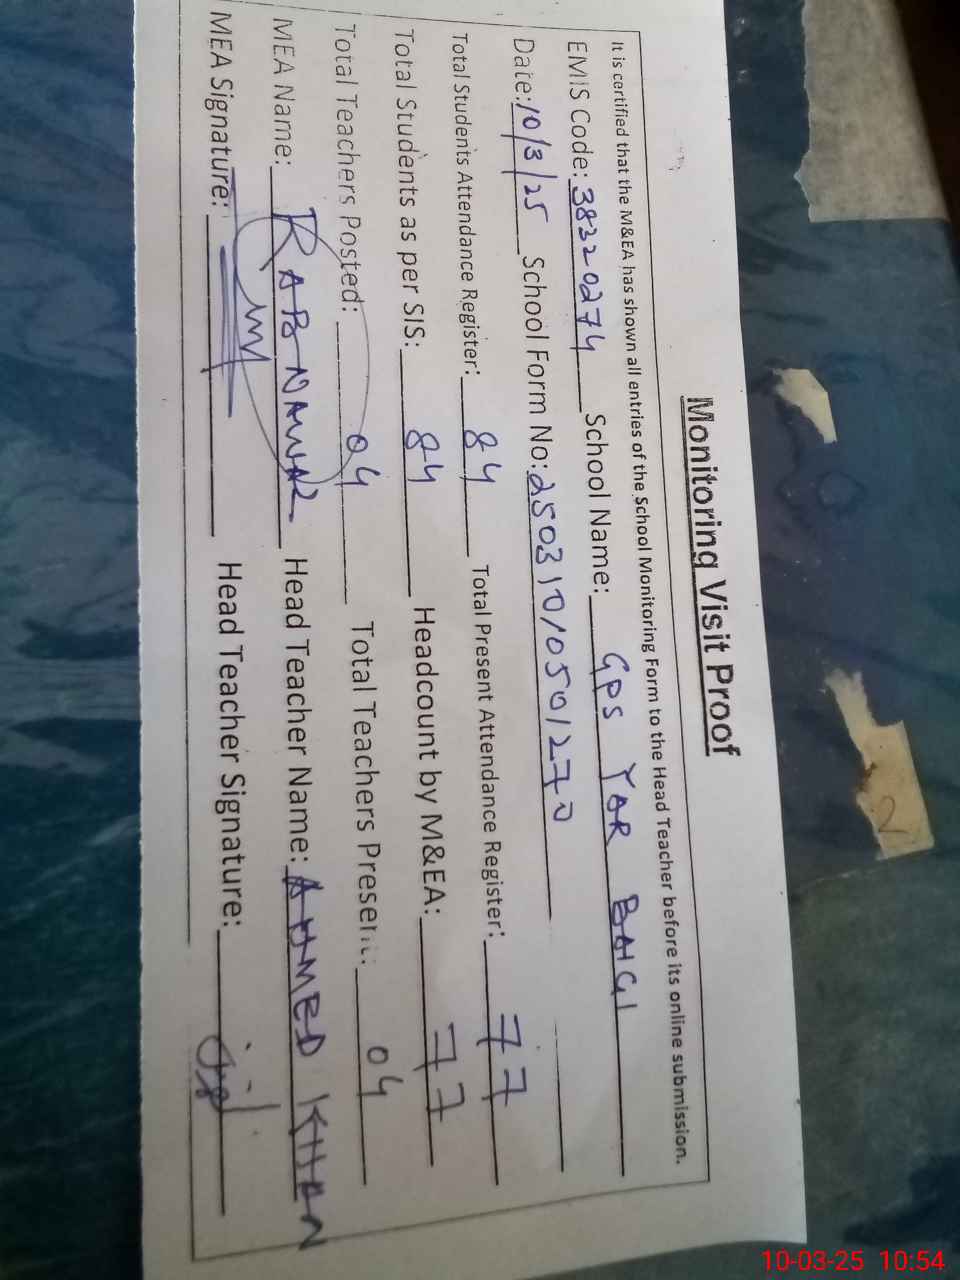 Monitoring Visit Proof
It is certified that the M&EA has shown all entries of the School Monitoring Form to the Head Teacher before its online submission.
EMIS Code: 38320274 School Name: GPS YAR BAIGI
Date: 10/3/25 School Form No: 25031010501270
Total Students Attendance Register: 84 Total Present Attendance Register: 77
Total Students as per SIS: 84 Headcount by M&EA: 77
Total Teachers Posted: 04 Total Teachers Present: 04
MEA Name: RAB NAWAZ Head Teacher Name: AHMED KHAN
MEA Signature: Head Teacher Signature:
10-03-25 10:54